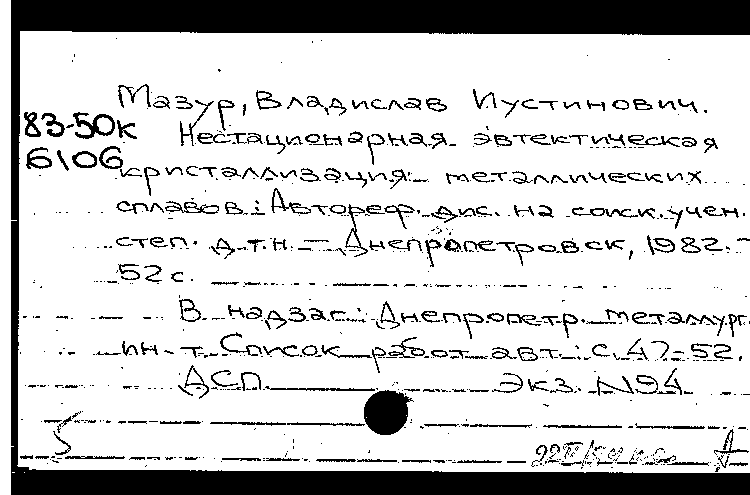 Мазур, Владислав Иустинович.
83-50к
Нестационарная эвтектическая
6106
кристаллизация металлических
сплавов: Автореф. дис. на соиск. учен.
степ. д.т.н. – Днепропетровск, 1982. –
52 с.
В надзаг.: Днепропетр. металлург.
ин-т. Список работ авт.: с. 47-52.
ДСП. Экз. №94